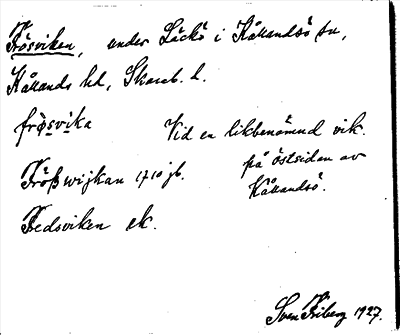 Frösviken, under Läckö i Kållandsö sn,
Kållands hd, Skarab. l.
frø̀svika
Vid en likbenämnd vik
på östsidan av
Kållandsö.
Fröss wijkan 1710 jb.
Fredsviken ek.
Sven Friberg 1927.